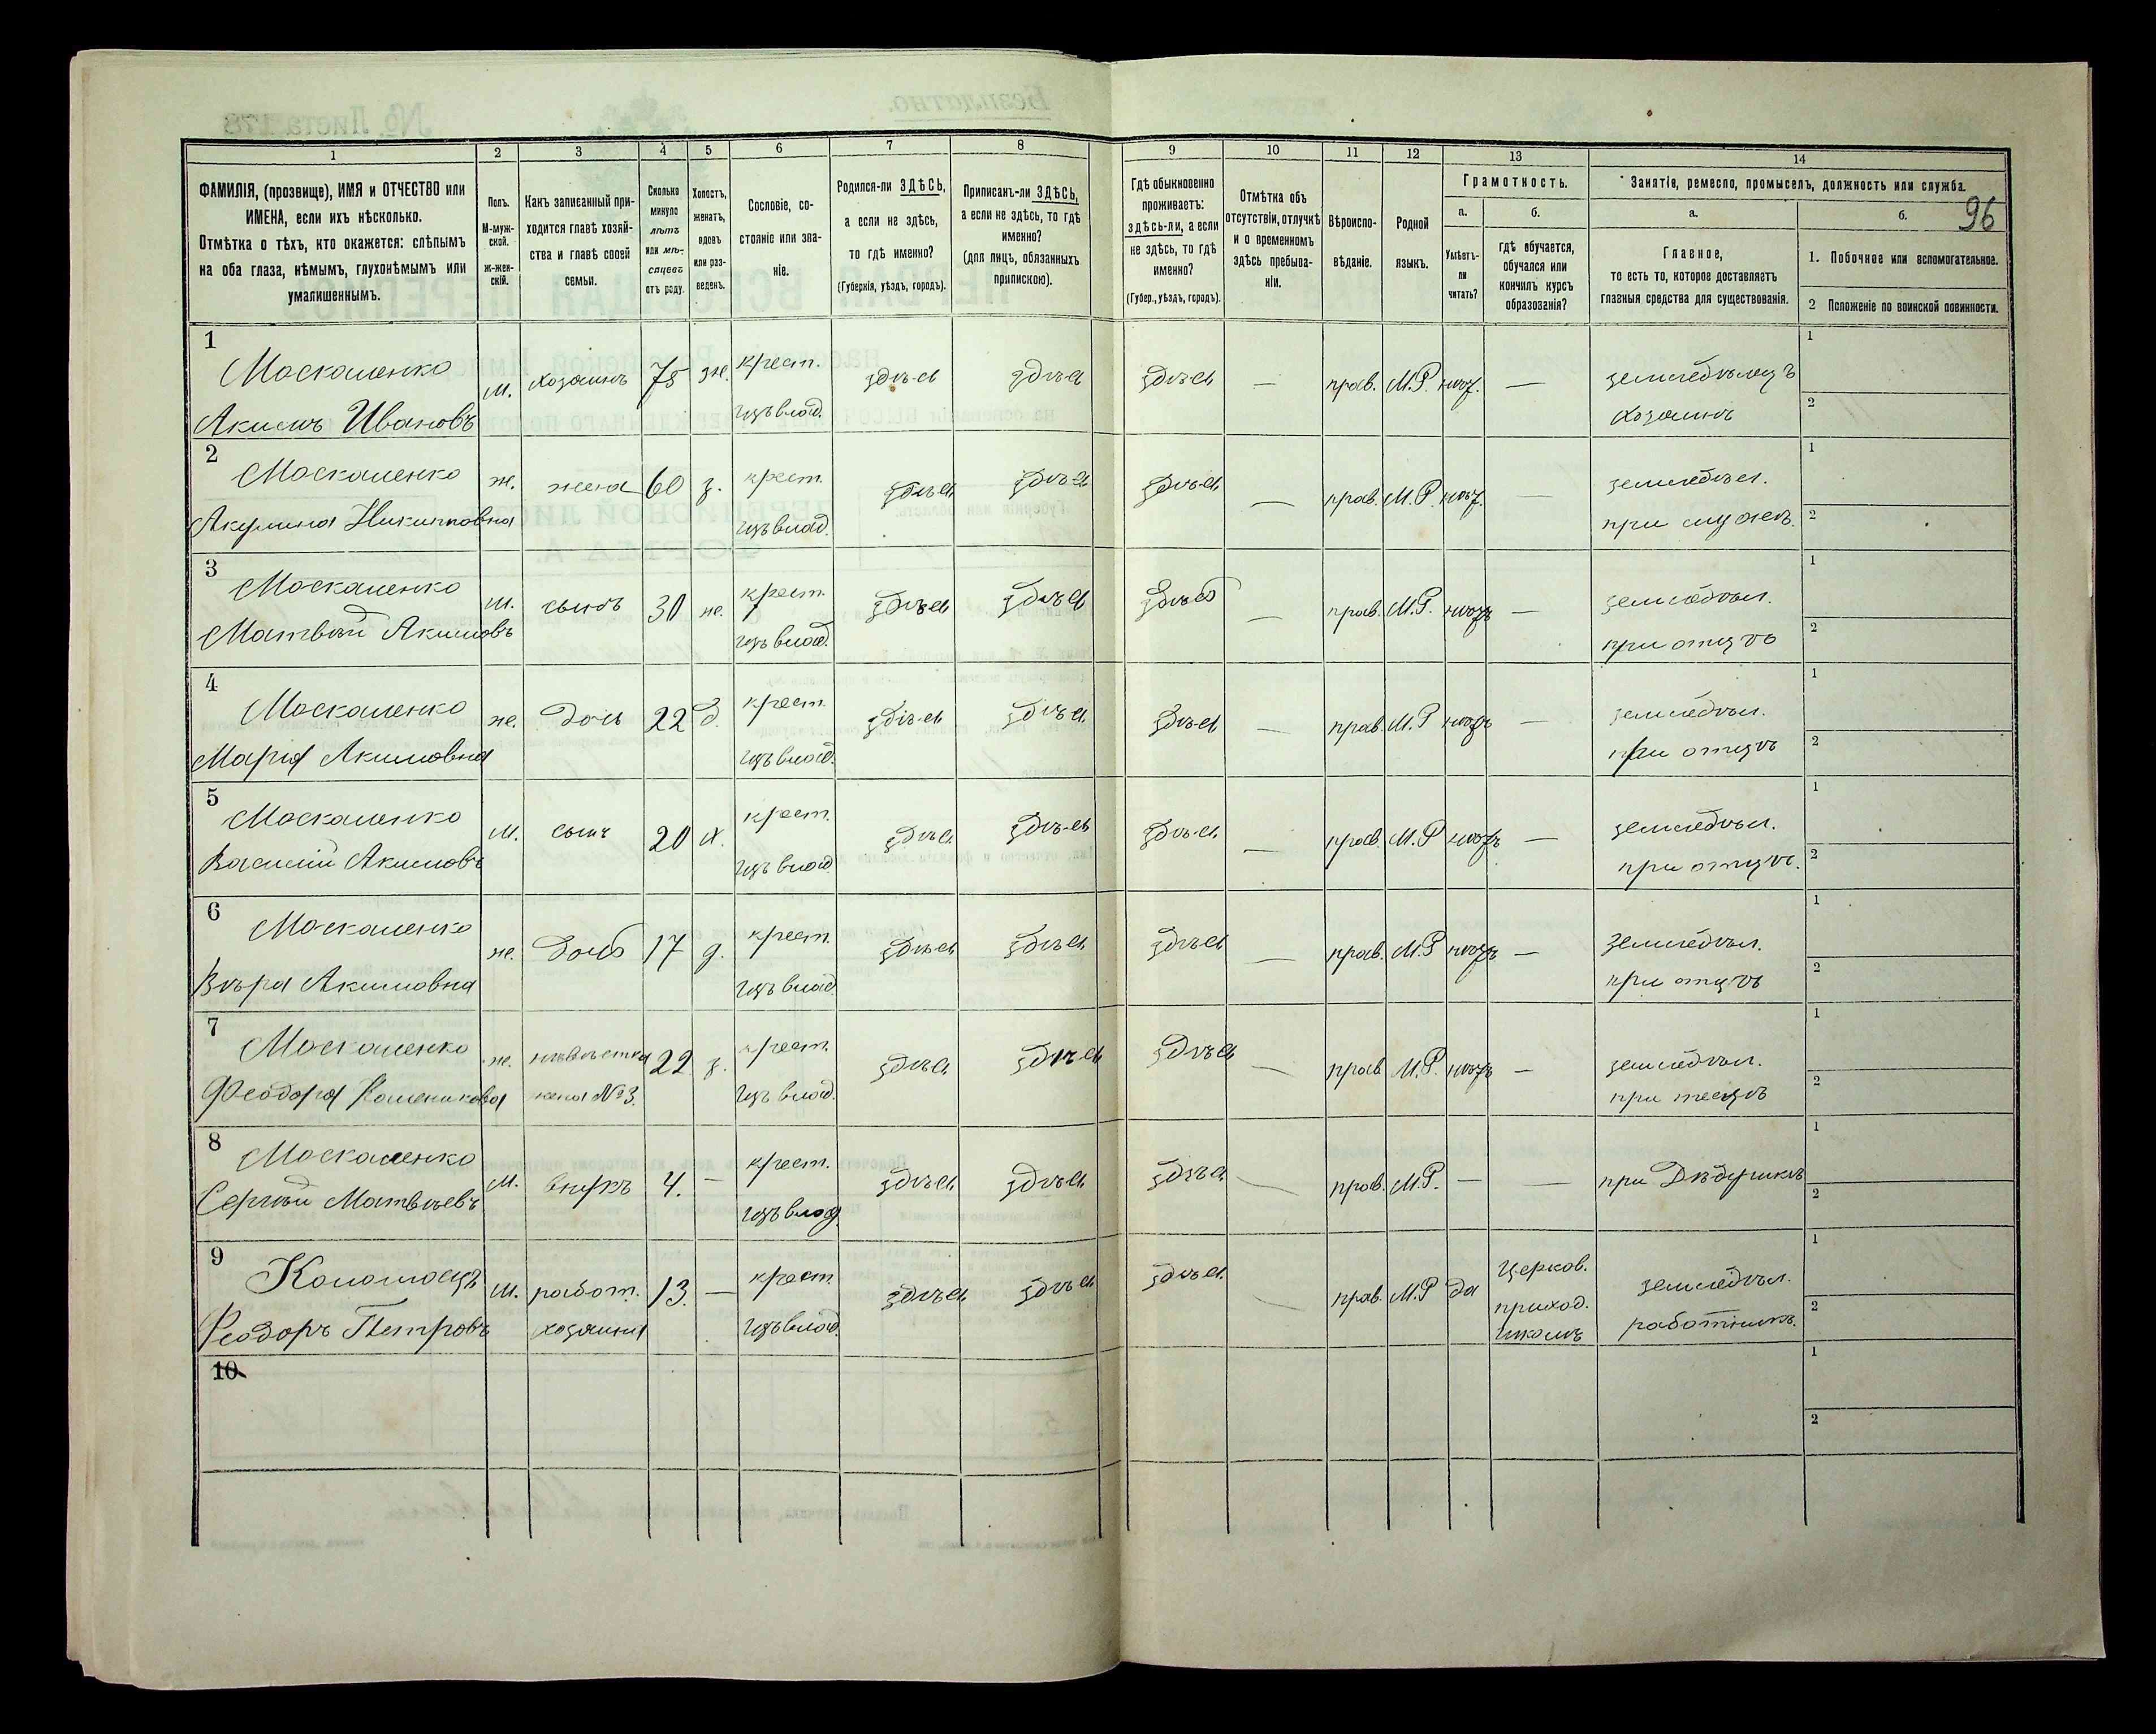 96
1 2 3 4 5 6 7 8 9 10 11 12 13 14
ФАМИЛІЯ, (прозвище), ИМЯ и ОТЧЕСТВО или ИМЕНА, если ихъ нѣсколько.
Отмѣтка о тѣхъ, кто окажется: слѣпымъ на оба глаза, нѣмымъ, глухонѣмымъ или умалишеннымъ.
Полъ. М-муж-ской. ж-жен-скій.
Какъ записанный при-ходится главѣ хозяй-ства и главѣ своей семьи.
Сколько минуло лѣтъ или мѣ-сяцевъ отъ роду.
Холостъ, женатъ, вдовъ или раз-веденъ.
Сословіе, со-стояніе или зва-ніе.
Родился-ли ЗДѢСЬ, а если не здѣсь, то гдѣ именно? (Губернія, уѣздъ, городъ).
Приписанъ-ли ЗДѢСЬ, а если не здѣсь, то гдѣ именно? (для лицъ, обязанныхъ припискою).
Гдѣ обыкновенно проживаетъ: здѣсь-ли, а если не здѣсь, то гдѣ именно? (Губер., уѣздъ, городъ).
Отмѣтка объ отсутствіи, отлучкѣ и о временномъ здѣсь пребыва-ніи.
Вѣроиспо-вѣданіе.
Родной языкъ.
Грамотность.
а. Умѣетъ-ли читать?
б. гдѣ обучается, обучался или кончилъ курсъ образованія?
Занятіе, ремесло, промыселъ, должность или служба.
а. Главное, то есть то, которое доставляетъ главныя средства для существованія.
б.
1. Побочное или вспомогательное.
2 Положеніе по воинской повинности.
1 Москаленко м. хозяинъ 75 ж. крест. здѣсь здѣсь здѣсь — прав. М.Р. нѣт. — земледѣлецъ 1
Акимъ Ивановъ изъ влад. хозяинъ 2
2 Москаленко ж. жена 60 з. крест. здѣсь здѣсь здѣсь — прав. М.Р. нѣт. — земледѣл. 1
Акулина Никитовна изъ влад. при мужѣ. 2
3 Москаленко м. сынъ 30 ж. крест. здѣсь здѣсь здѣсь — прав. М.Р. нѣтъ — земледѣл. 1
Матвѣй Акимовъ изъ влад. при отцѣ 2
4 Москаленко ж. дочь 22 д. крест. здѣсь здѣсь здѣсь — прав. М.Р нѣтъ — земледѣл. 1
Марія Акимовна изъ влад. при отцѣ 2
5 Москаленко м. сынъ 20 х. крест. здѣсь здѣсь здѣсь — прав. М.Р нѣтъ — земледѣл. 1
Василій Акимовъ изъ влад. при отцѣ. 2
6 Москаленко ж. дочь 17 д. крест. здѣсь здѣсь здѣсь — прав. М.Р нѣтъ — земледѣл. 1
Вѣра Акимовна изъ влад. при отцѣ 2
7 Москаленко ж. невѣстка 22 з. крест. здѣсь здѣсь здѣсь — прав. М.Р. нѣтъ — земледѣл. 1
Феодора жена №3. изъ влад. при 2
8 Москаленко м. внукъ 4. — крест. здѣсь здѣсь здѣсь — прав. М.Р. — — при Дѣдушкѣ 1
Сергѣй Матвѣевъ изъ влад 2
9 Коломоецъ м. работ. 13. — крест. здѣсь здѣсь здѣсь — прав. М.Р да церков. земледѣл. 1
Феодоръ Петровъ хозяина изъ влад. приход. школѣ работникъ. 2
10 1
2